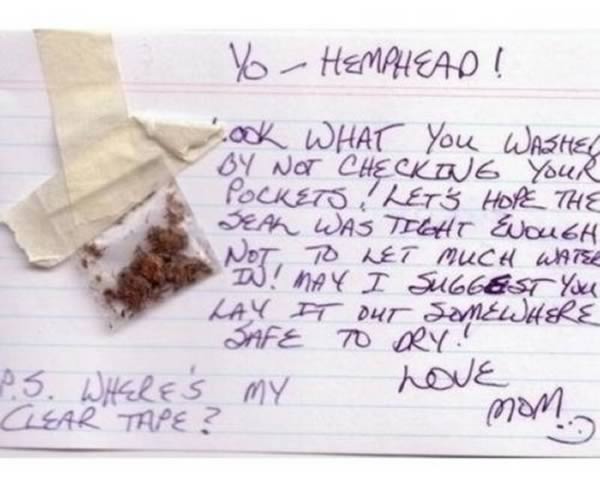 Yo - HEMPHEAD!
LOOK WHAT YOU WASHED
BY NOT CHECKING YOUR
POCKETS! LET'S HOPE THE
SEAL WAS TIGHT ENOUGH
NOT TO LET MUCH WATER
IN! MAY I SUGGEST YOU
LAY IT OUT SOMEWHERE
SAFE TO DRY!
LOVE
MOM
P.S. WHERE'S MY
CLEAR TAPE?